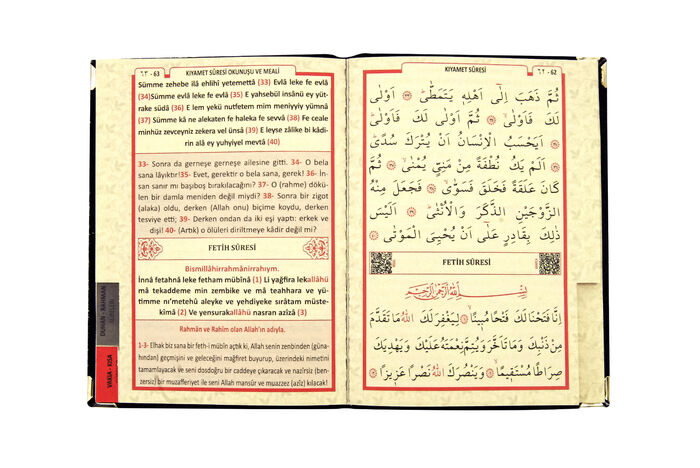 ٦٣ - 63
KIYAMET SÛRESİ OKUNUŞU VE MEALİ
Sümme zehebe ilâ ehlihî yetemettâ (33) Evlâ leke fe evlâ
(34)Sümme evlâ leke fe evlâ (35) E yahsebül insânü ey yüt-
rake südâ (36) E lem yekü nutfetem mim meniyyiy yümnâ
(37) Sümme kâ ne alekaten fe haleka fe sevvâ (38) Fe ceale
minhüz zevceyniz zekera vel ünsâ (39) E leyse zâlike bi kâdi-
rin alâ ey yuhyiyel mevtâ (40)
33- Sonra da gerneşe gerneşe ailesine gitti. 34- O bela
sana lâyıktır!35- Evet, gerektir o bela sana, gerek! 36- İn-
san sanır mı başıboş bırakılacağını? 37- O (rahme) dökü-
len bir damla meniden değil miydi? 38- Sonra bir zigot
(alaka) oldu, derken (Allah onu) biçime koydu, derken
tesviye etti; 39- Derken ondan da iki eşi yaptı: erkek ve
dişi! 40- (Artık) o ölüleri diriltmeye kâdir değil mi?
FETİH SÛRESİ
Bismillâhirrahmânirrahıym.
İnnâ fetahnâ leke fetham mübînâ (1) Li yağfira lekallâhü
mâ tekaddeme min zembike ve mâ teahhara ve yü-
timme nı'metehû aleyke ve yehdiyeke sırâtam müste-
kîmâ (2) Ve yensurakallâhü nasran azîzâ (3)
Rahmân ve Rahîm olan Allah'ın adıyla.
1-3- Elhak biz sana bir feth-i mübîn açtık ki, Allah senin zenbinden (güna-
hından) geçmişini ve geleceğini mağfiret buyurup, üzerindeki nimetini
tamamlayacak ve seni dosdoğru bir caddeye çıkaracak ve nazîrsiz (ben-
zersiz) bir muzafferiyet ile seni Allah mansûr ve muazzez (azîz) kılacak!
DUHAN - RAHMAN
VAKIA - KISA
KIYAMET SÛRESİ
٦٢ - 62
ثُمَّ ذَهَبَ اِلٰٓى اَهْلِهٖ يَتَمَطّٰىۜ ﴿٣٣﴾ اَوْلٰى
لَكَ فَاَوْلٰىۙ ﴿٣٤﴾ ثُمَّ اَوْلٰى لَكَ فَاَوْلٰىۜ
﴿٣٥﴾ اَيَحْسَبُ الْاِنْسَانُ اَنْ يُتْرَكَ سُدًىۜ
﴿٣٦﴾ اَلَمْ يَكُ نُطْفَةً مِنْ مَنِيٍّ يُمْنٰىۙ ﴿٣٧﴾ ثُمَّ
كَانَ عَلَقَةً فَخَلَقَ فَسَوّٰىۙ ﴿٣٨﴾ فَجَعَلَ مِنْهُ
الزَّوْجَيْنِ الذَّكَرَ وَالْاُنْثٰىۜ ﴿٣٩﴾ اَلَيْسَ
ذٰلِكَ بِقَادِرٍ عَلٰٓى اَنْ يُحْيِيَ الْمَوْتٰى ﴿٤٠﴾
FETİH SÛRESİ
بِسْمِ اللّٰهِ الرَّحْمٰنِ الرَّحٖيمِ
اِنَّا فَتَحْنَا لَكَ فَتْحًا مُبٖينًاۙ ﴿١﴾ لِيَغْفِرَ لَكَ اللّٰهُ مَا تَقَدَّمَ
مِنْ ذَنْبِكَ وَمَا تَاَخَّرَ وَيُتِمَّ نِعْمَتَهُ عَلَيْكَ وَيَهْدِيَكَ
صِرَاطًا مُسْتَقٖيمًاۙ ﴿٢﴾ وَيَنْصُرَكَ اللّٰهُ نَصْرًا عَزٖيزًا ﴿٣﴾